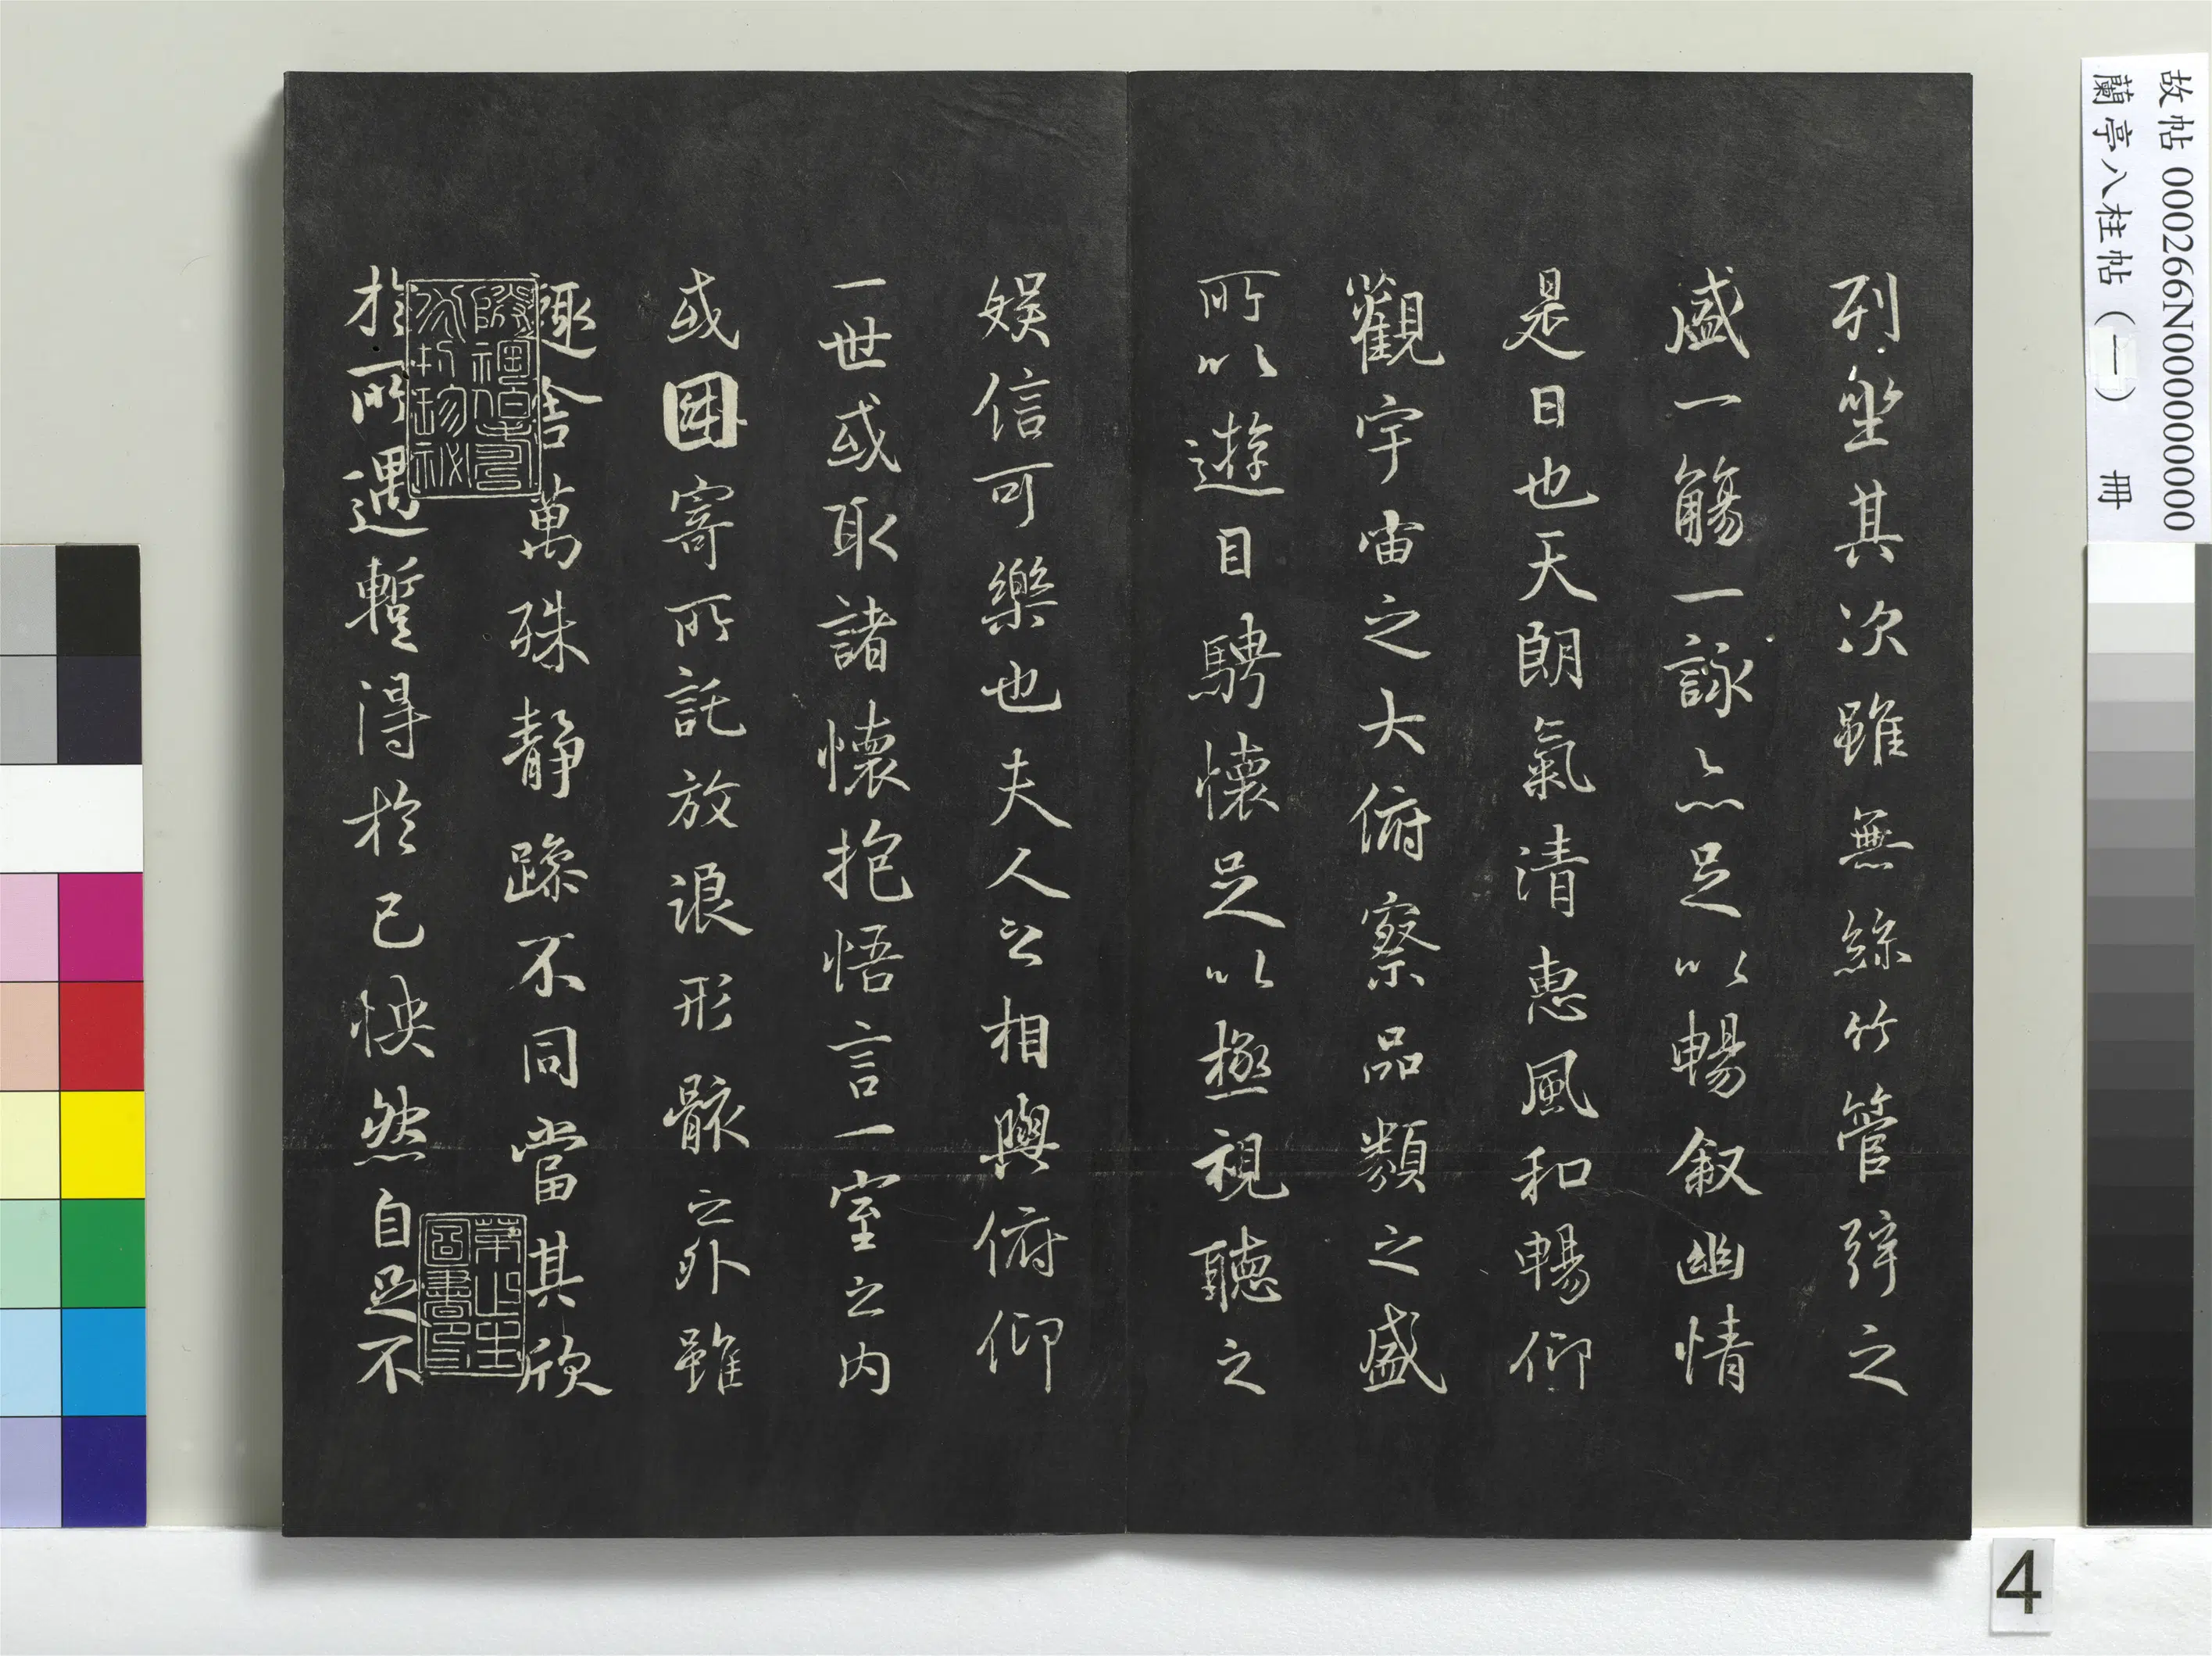 列坐其次雖無絲竹管弦之
盛一觴一詠亦足以暢敘幽情
是日也天朗氣清惠風和暢仰
觀宇宙之大俯察品類之盛
所以遊目騁懷足以極視聽之
娛信可樂也夫人之相與俯仰
一世或取諸懷抱悟言一室之內
或因寄所託放浪形骸之外雖
趣舍萬殊靜躁不同當其欣
於所遇暫得於己怏然自足不
故帖 000266N000000000
蘭亭八柱帖（一） 冊
4